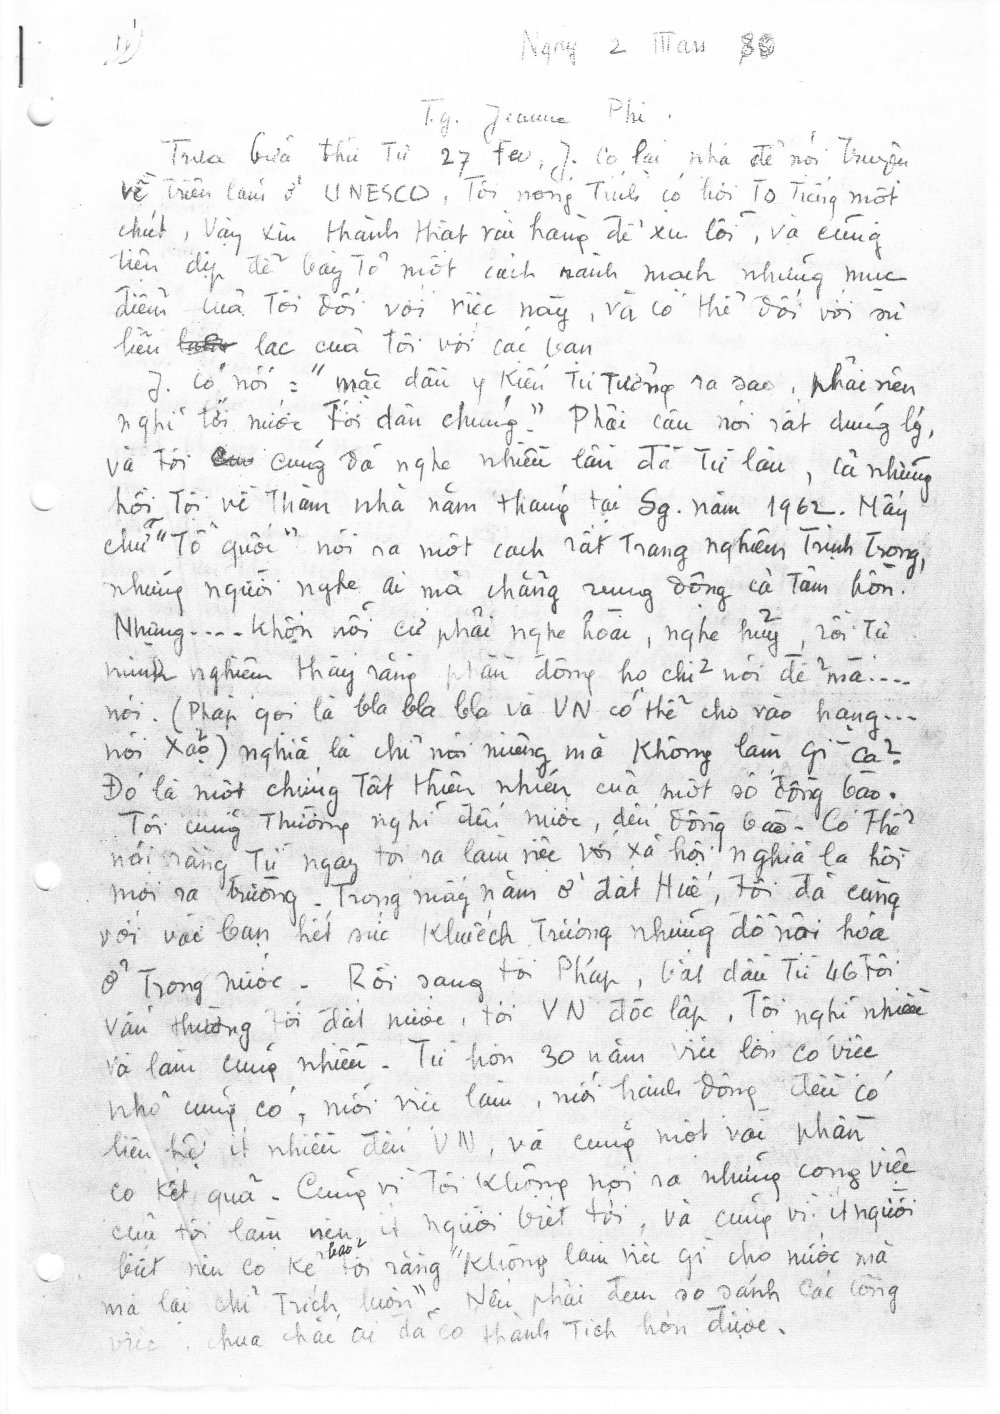 Ngày 2 Mars 80
T.g. Jeanne Phi.
Trưa bữa thứ Tư 27 Fev, J. có lại nhà để nói truyện
về triển lãm ở UNESCO, Tôi nóng tính có hơi To Tiếng một
chút, Vậy xin thành thật vài hàng để xin lỗi, và cũng
tiện dịp để bày Tỏ một cách rành mạch những mục
điểm của Tôi đối với việc này, và có thể đối với sự
liên lạc của Tôi với các bạn
J. có nói = "mặc dầu ý kiến Tư Tưởng ra sao, phải nên
nghĩ tới nước Tới dân chúng". Phải câu nói rất đúng lý,
và tôi cũng đã nghe nhiều lần đã Từ lâu, cả những
hồi Tôi về Thăm nhà năm tháng tại Sg. năm 1962. Mấy
chữ "Tổ quốc" nói ra một cách rất Trang nghiêm Trịnh Trọng,
những người nghe ai mà chẳng rung động cả Tâm hồn.
Nhưng.... khốn nỗi cứ phải nghe hoài, nghe hủy, rồi Tự
mình nghiệm thấy rằng phần đông họ chỉ nói để mà....
nói. (Pháp gọi là bla bla bla và VN có thể cho vào hạng...
nói xạo) nghĩa là chỉ nói miệng mà không làm gì cả?
Đó là một chứng Tật thiên nhiên của một số đồng bào.
Tôi cũng Thường nghĩ đến nước, đến đồng bào. Có Thể
nói rằng Từ ngày tôi ra làm việc với xã hội nghĩa là hồi
mới ra trường. Trong mấy năm ở đất Huế, tôi đã cùng
với vài bạn hết sức khuếch Trương những đồ nội hóa
ở Trong nước. Rồi sang tới Pháp, bắt đầu Từ 46 tôi
vẫn thường tới đất nước, tới VN độc lập, Tôi nghĩ nhiều
và làm cũng nhiều. Từ hơn 30 năm việc lớn có việc
nhỏ cũng có, mỗi việc làm, mỗi hành động đều có
liên hệ ít nhiều đến VN, và cũng một vài phần
có kết quả. Cũng vì Tôi không nói ra những công việc
của tôi làm nên ít người biết tới, và cũng vì ít người
biết nên có kẻ bảo tôi rằng "không làm việc gì cho nước mà
mà lại chỉ Trích luôn". Nếu phải đem so sánh các công
việc, chưa chắc ai đã có thành Tích hơn được.